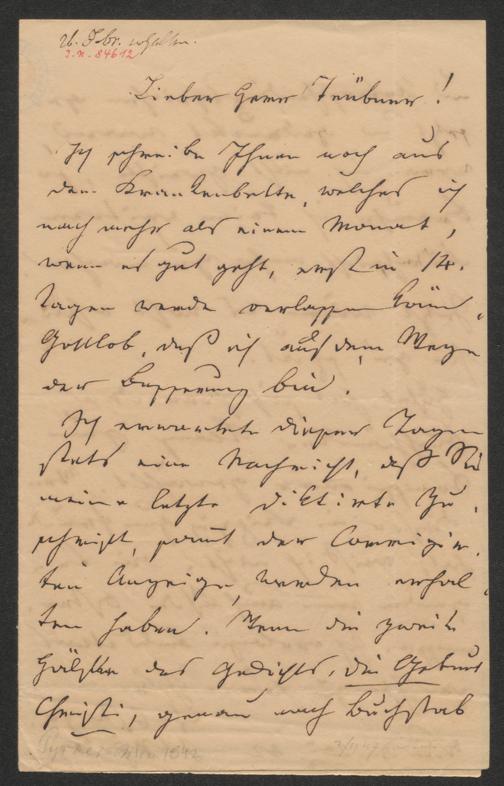 26. Febr. erhalten.
I.N. 84612
Lieber Herr Teubner!
Ich schreibe Ihnen noch aus
dem Krankenbette, welches ich
nach mehr als einem Monat,
wenn es gut geht, erst in 14.
Tagen werde verlassen könn.
Gottlob, daß ich auf dem Wege
der Besserung bin.
Ich erwartete dieser Tagen
stets eine Nachricht, daß Sie
meine letzte diktirte Zu-
schrift, samt der Corrigir-
ten Anzeige, werden erhal-
ten haben. Wenn die zweite
Hälfte des Gedichts, die Geburt
Christi, genau nach Buchstab
Pyrker 1842